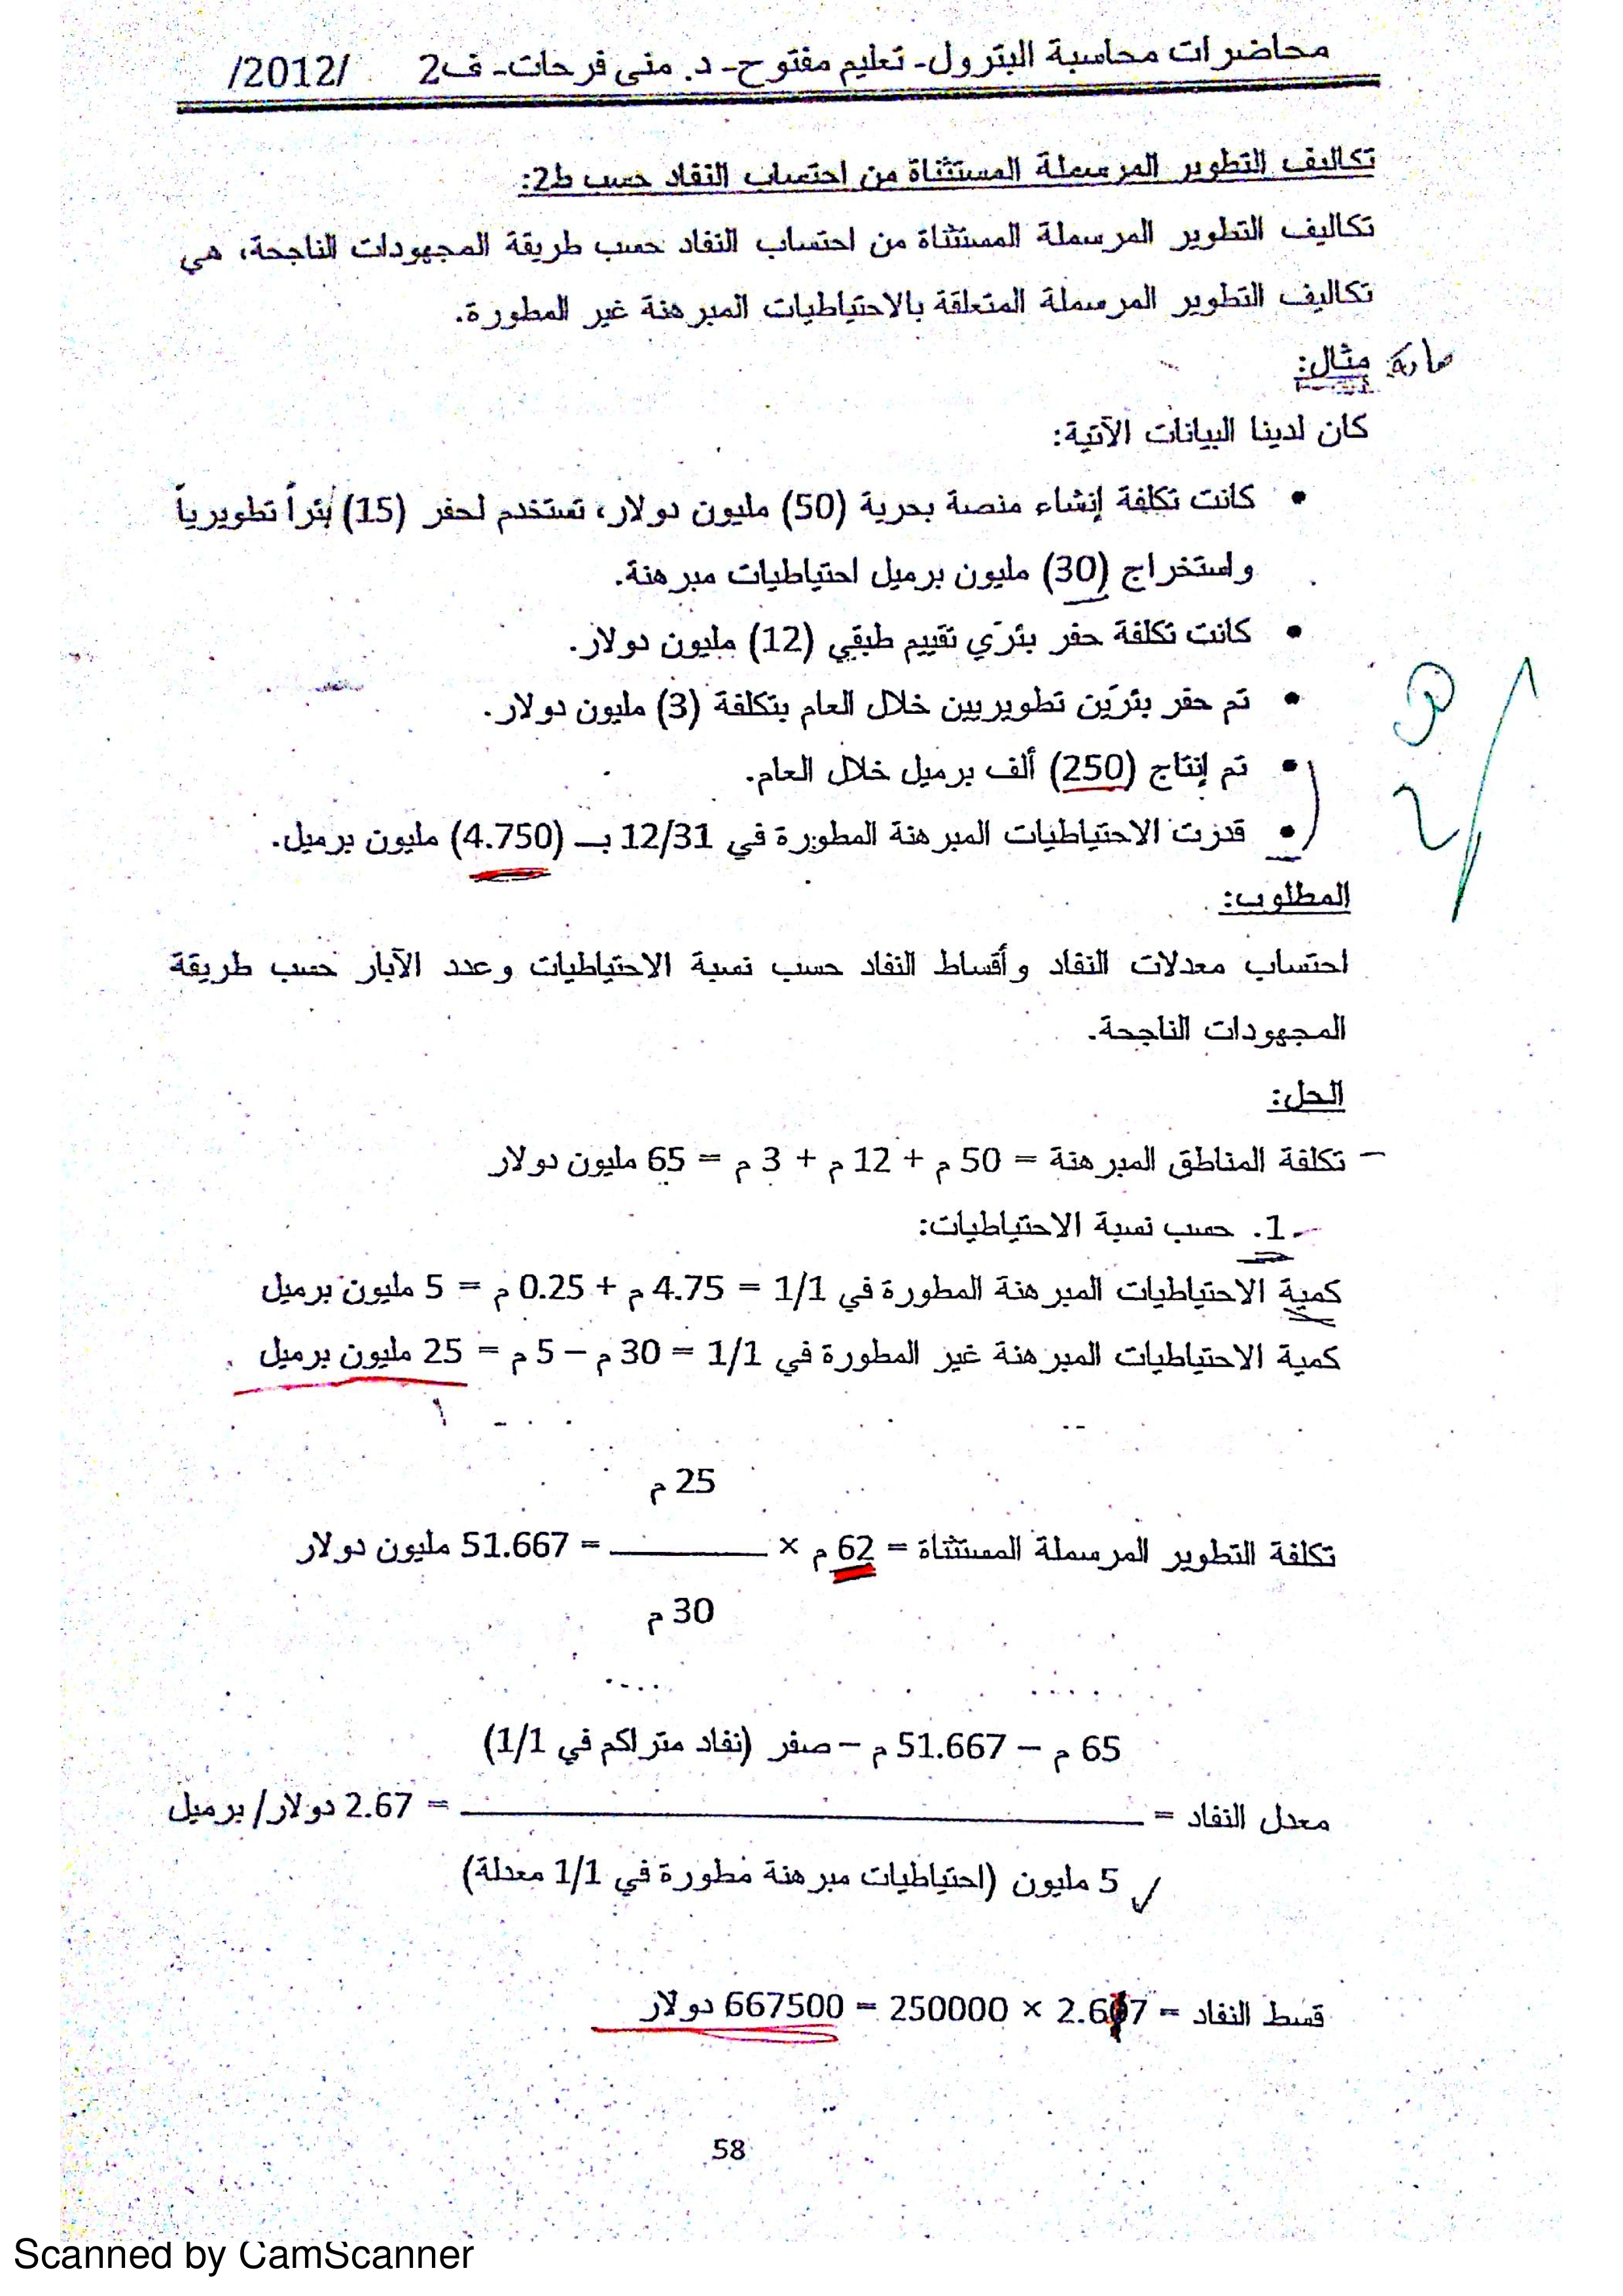 محاضرات محاسبة البترول- تعليم مفتوح- د. منى فرحات- ف2 /2012/
تكاليف التطوير المرسملة المستثناة من احتساب النفاد حسب ط2:
تكاليف التطوير المرسملة المستثناة من احتساب النفاد حسب طريقة المجهودات الناجحة، هي
تكاليف التطوير المرسملة المتعلقة بالاحتياطيات المبرهنة غير المطورة.
مثال:
كان لدينا البيانات الآتية:
• كانت تكلفة إنشاء منصة بحرية (50) مليون دولار، تستخدم لحفر (15) بئراً تطويرياً
واستخراج (30) مليون برميل احتياطيات مبرهنة.
• كانت تكلفة حفر بئرَي تقييم طبقي (12) مليون دولار.
• تم حفر بئرَين تطويريين خلال العام بتكلفة (3) مليون دولار.
• تم إنتاج (250) ألف برميل خلال العام.
• قدرت الاحتياطيات المبرهنة المطورة في 12/31 بـ (4.750) مليون برميل.
المطلوب:
احتساب معدلات النفاد وأقساط النفاد حسب نسبة الاحتياطيات وعدد الآبار حسب طريقة
المجهودات الناجحة.
الحل:
– تكلفة المناطق المبرهنة = 50 م + 12 م + 3 م = 65 مليون دولار
1. حسب نسبة الاحتياطيات:
كمية الاحتياطيات المبرهنة المطورة في 1/1 = 4.75 م + 0.25 م = 5 مليون برميل
كمية الاحتياطيات المبرهنة غير المطورة في 1/1 = 30 م – 5 م = 25 مليون برميل
25 م
تكلفة التطوير المرسملة المستثناة = 62 م × ـــــــــــ = 51.667 مليون دولار
30 م
65 م – 51.667 م – صفر (نفاد متراكم في 1/1)
معدل النفاد = ـــــــــــــــــــــــــــ = 2.67 دولار/ برميل
5 مليون (احتياطيات مبرهنة مطورة في 1/1 معدلة)
قسط النفاد = 2.67 × 250000 = 667500 دولار
58
Scanned by CamScanner